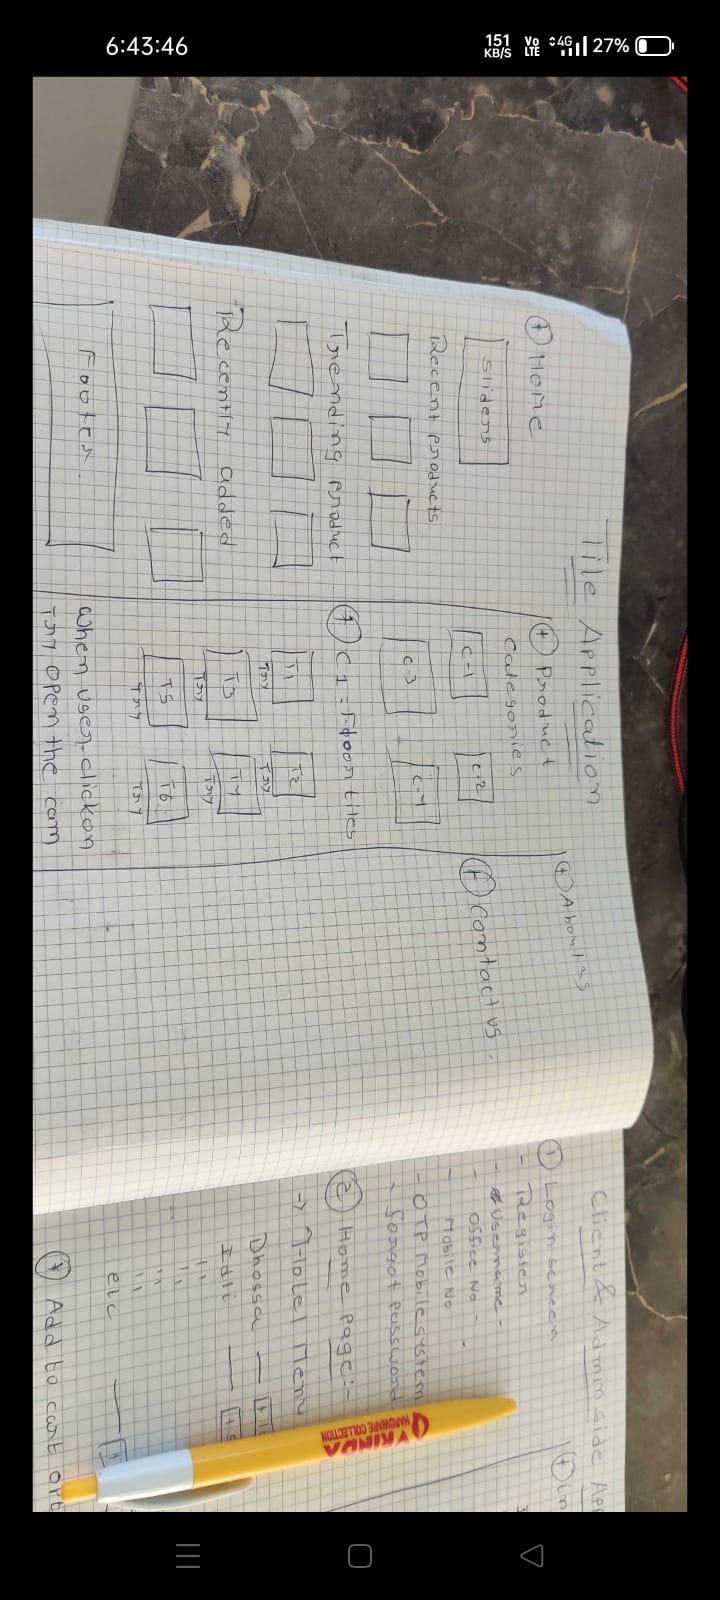 6:43:46
151 KB/S Vo LTE 4G 27%
Tile Application
+ Home
Sliders
Recent products
Trending product
Recently added
Footer.
+ Product
categories
C-1
C-2
C-3
+ C1 =
tiles
T1
T2
Try
Try
T3
T4
Try
Try
T5
T6
Try
Try
When user click on
Try open the cam
+ About us
+ Contact us.
Client & Admin side App
1 Login screen
- Register
- Username -
- Office No -
- Mobile No
- OTP Mobile system
- forgot password
2 Home Page:-
→ Hotel Menu
Dhossa
Idli
etc
+ Add to cart
+ in
VRINDA
HARDWARE COLLECTION